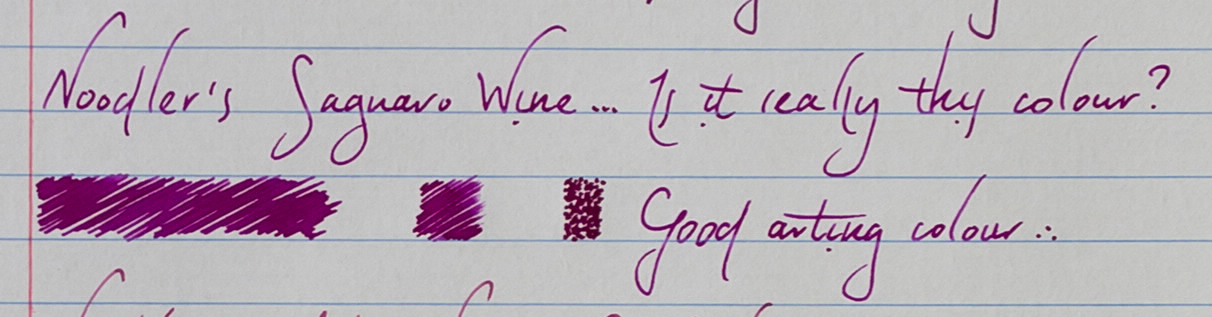 Noodler's Saguaro Wine... Is it really thy colour?
Good arting colour ∴